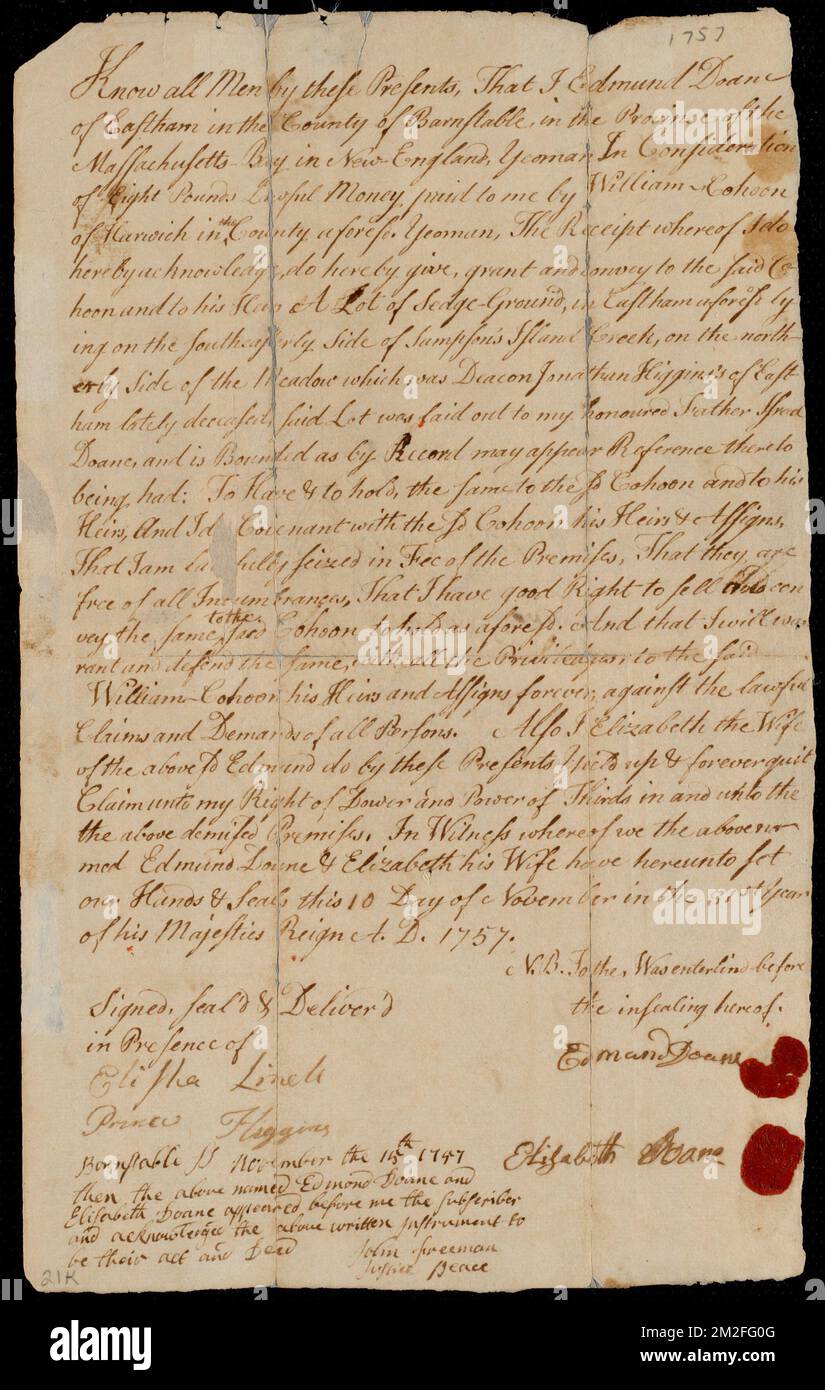 1757
Know all Men by these Presents, That I Edmund Doane
of Eastham in the County of Barnstable, in the Province of the
Massachusetts-Bay in New-England, Yeoman In Consideration
of Eight Pounds Lawful Money paid to me by William Cohoon
of Harwich in the County afores.d Yeoman, The Receipt whereof I do
hereby acknowledge, do hereby give, grant and convey to the said Co
hoon and to his Heirs A Lot of Sedge-Ground, in Eastham afores.d ly
ing on the southeasterly Side of Sampson's Island Creek, on the north
erly side of the Meadow which was Deacon Jonathan Higgins's of East
ham lately deceased, said Lot was laid out to my honoured Father Israel
Doane, and is Bounded as by Record may appear Reference thereto
being had: To Have & to hold, the same to the sd Cohoon and to his
Heirs, And I do Covenant with the sd Cohoon his Heirs & Assigns,
That I am lawfully seized in Fee of the Premises, That they are
free of all Incumbrances, That I have good Right to sell and con
vey the same to the said Cohoon to hold as aforesd. And that I will war
rant and defend the same, with all the Priviledges to the said
William Cohoon his Heirs and Assigns forever, against the lawful
Claims and Demands of all Persons. Also I Elizabeth the Wife
of the above sd Edmund do by these Presents Yield up & forever quit
Claim unto my Right of Dower and Power of Thirds in and unto the
the above demised Premises. In Witness whereof we the above na
med Edmund Doane & Elizabeth his Wife have hereunto set
our Hands & Seals this 10 Day of November in the 31st Year
of his Majesties Reign A. D. 1757.
N.B. To the, Was enterlin'd before
the insealing hereof.
Signed, seal'd & Deliver'd
in Presence of
Elisha Linel
Prince Higgins
Edmand Doane
Elisabeth Doane
Barnstable ss November the 14th 1757
then the above named Edmond Doane and
Elisabeth Doane appeared before me the subscriber
and acknowledged the above written instrument to
be their act and Deed
John Freeman
Justice Peace
21K
alamy
Image ID: 2M2FG0G
www.alamy.com